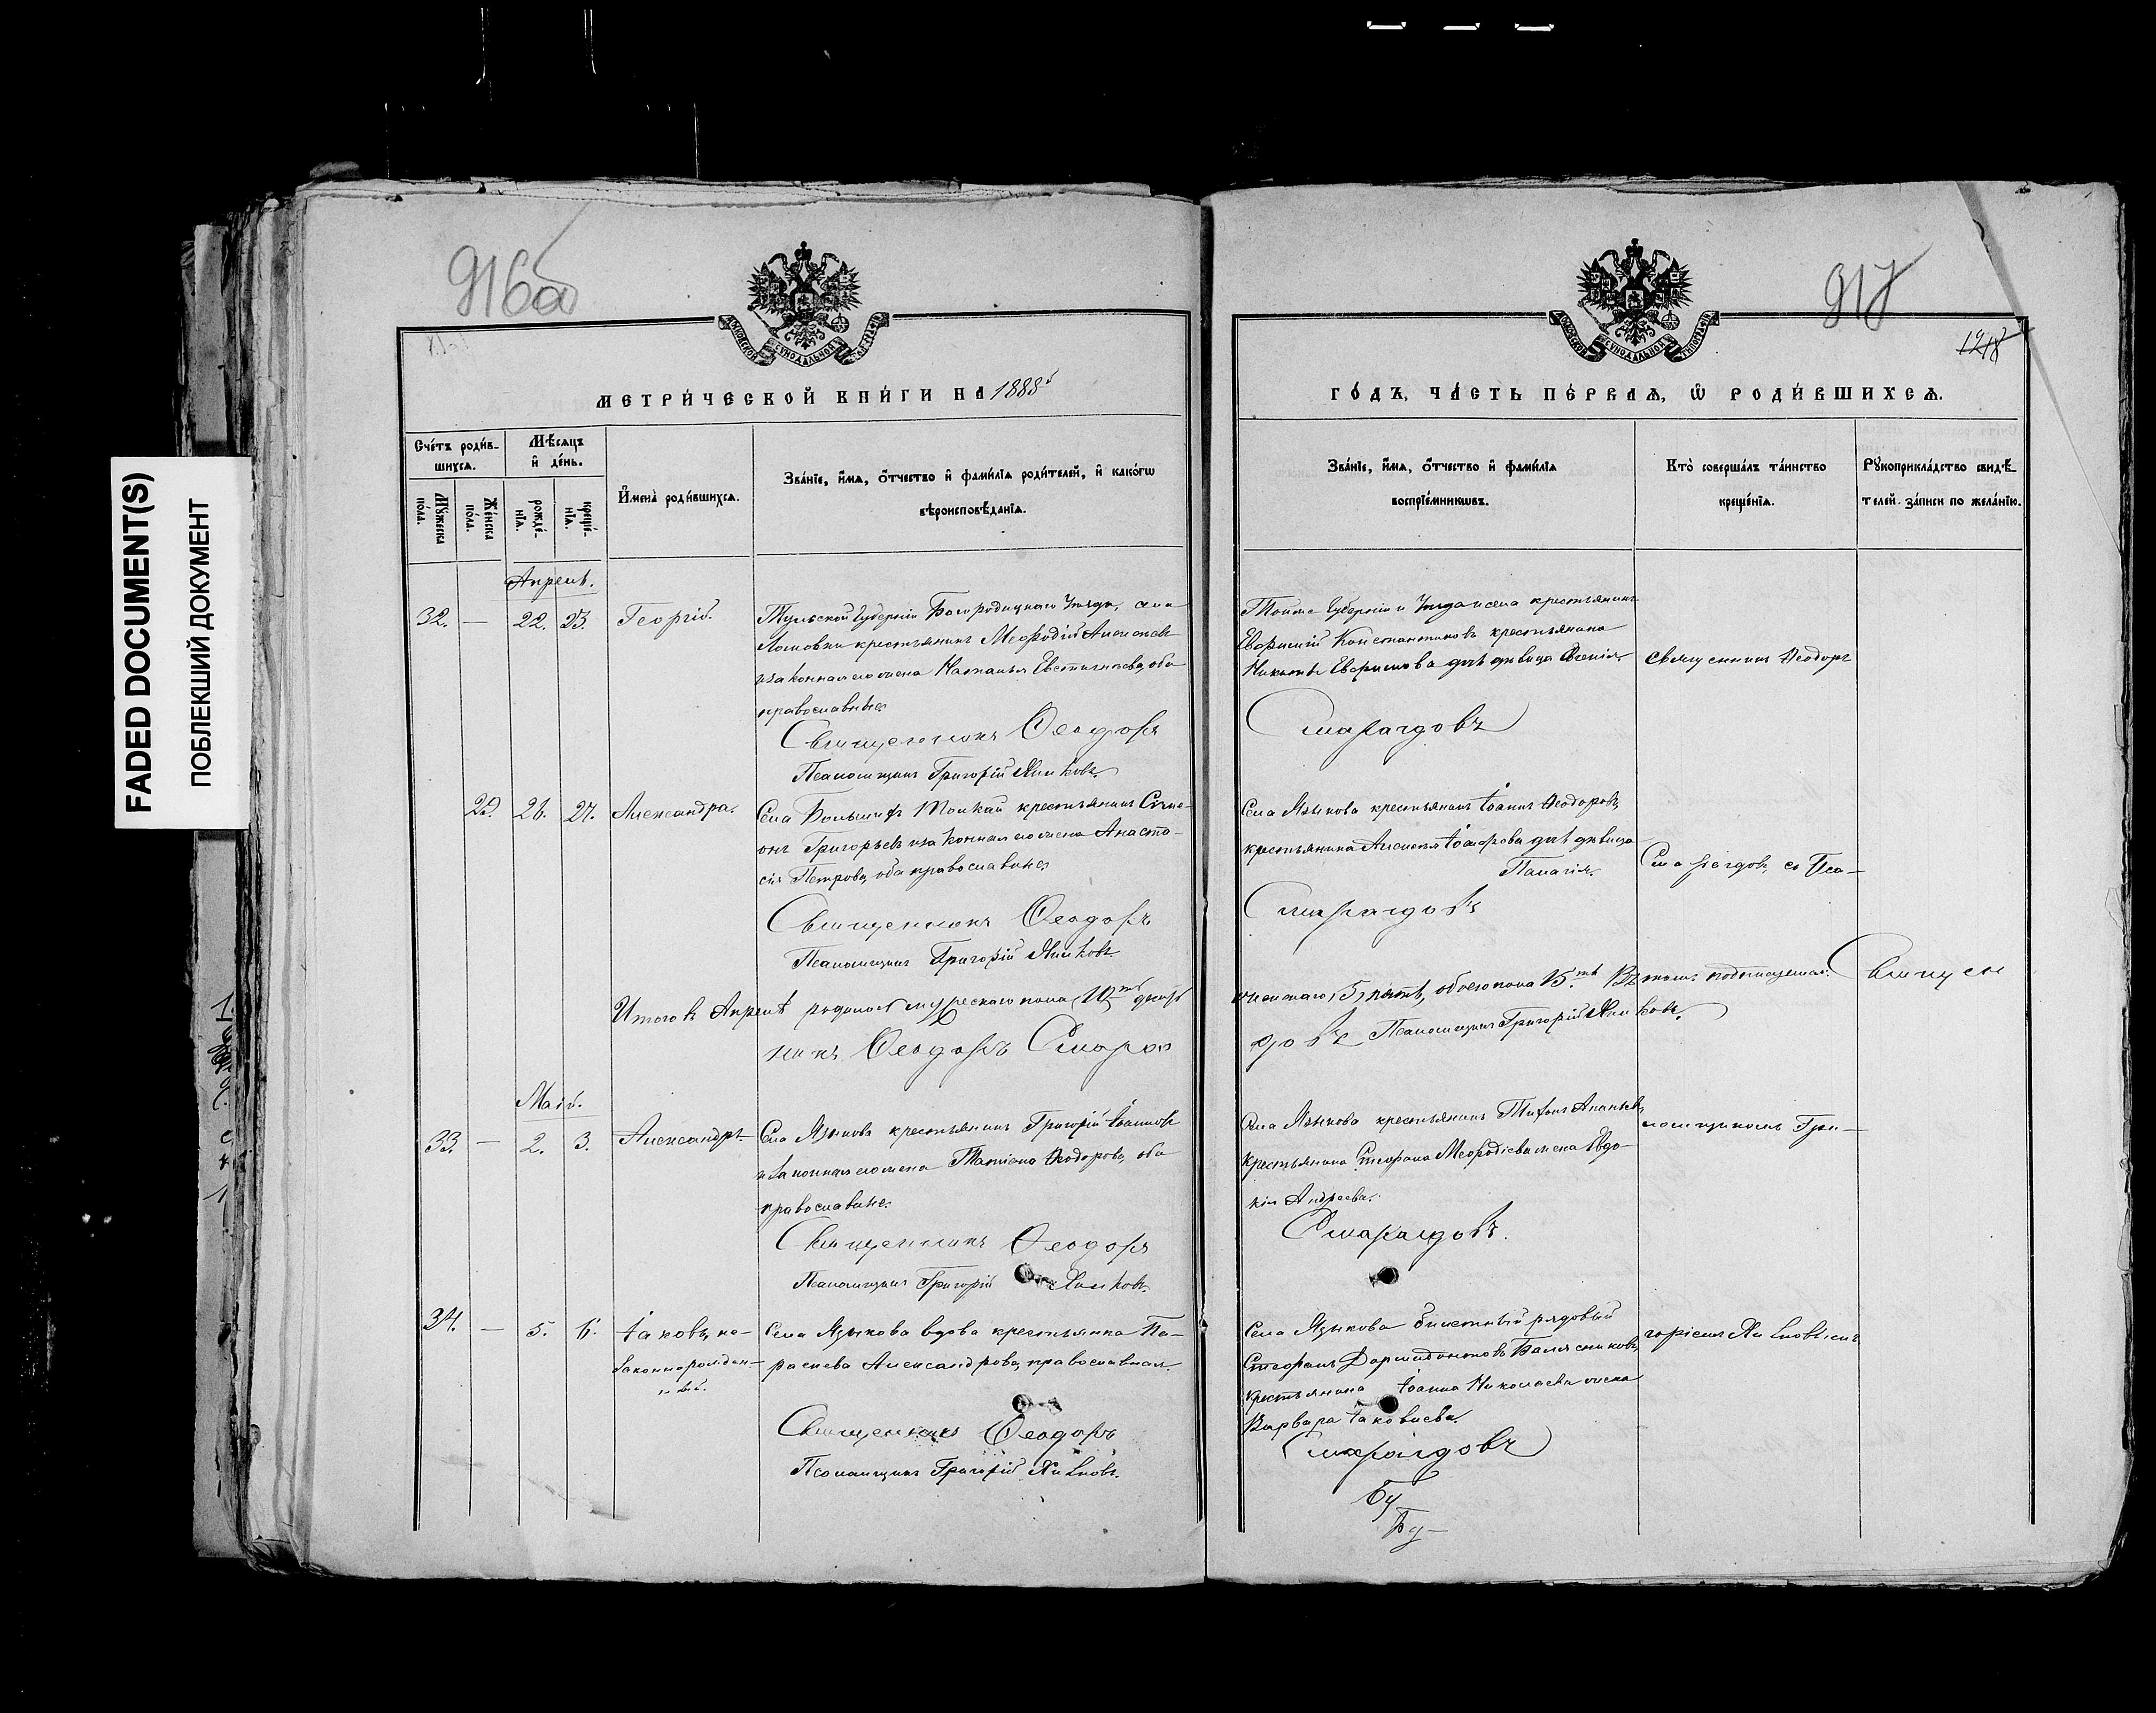 FADED DOCUMENT(S)
ПОБЛЕКШИЙ ДОКУМЕНТ
916об
917
1218
МОСКОВСКОЙ СѴНОДАЛЬНОЙ ТИПОГРАФІИ
МОСКОВСКОЙ СѴНОДАЛЬНОЙ ТИПОГРАФІИ
МЕТРИЧЕСКОЙ КНИГИ НА 1888й
ГОДЪ, ЧАСТЬ ПЕРВАѦ, Ѡ РОДИВШИХСѦ.
Счетъ родив-
шихся.
Мѣсяцъ
и день.
Мꙋжеска
пола.
Женска
пола.
рожде-
нїа.
креще-
нїа.
Имена родившихся.
Званїе, имя, отчество и фамилїа родителей, и какогѡ
вѣроисповѣданїа.
Званїе, имя, отчество и фамилїа
воспрїемникѡвъ.
Кто совершалъ таинство
крещенїа.
Рꙋкоприкладство свидѣ-
телей записи по желанїю.
Апрель.
32. — 22. 23. Георгій.
Тульской Губерніи Богородицкаго Уезда, села
Ломовки крестьянинъ Меѳодій Алексѣевъ
и законная его жена Наталья Евстигнѣева, оба
православные
Священникъ Ѳеодоръ
Псаломщикъ Григорій
Тойже Губерніи и Уезда и села крестьянинъ
Евфимій Константиновъ крестьянина
Никиты Евфимова дочь девица Ксенія.
Смарагдовъ
Священникъ Ѳеодоръ
29. 26. 27. Александра.
Села крестьянинъ Симе-
онъ Григорьевъ и законная его жена Анаста-
сія Петрова, оба православные
Священникъ Ѳеодоръ
Псаломщикъ Григорій
Села Языкова крестьянинъ Іоаннъ Ѳеодоровъ,
крестьянина Алексея дочь девица
Пелагія.
Смарагдовъ
Смарагдовъ, съ Пса-
Итого въ Апреле родилось мужескаго пола 10ть душъ
женскаго 5 пять, обоего пола 15ть. Въ томъ подписуемся: Священ
никъ Ѳеодоръ Смараг
довъ Псаломщикъ Григорій
Май.
33. — 2. 3. Александръ.
Села Языкова крестьянинъ Григорій Іоанновъ
и законная его жена Татіана Ѳеодорова, оба
православные.
Священникъ Ѳеодоръ
Псаломщикъ Григорій
Села Языкова крестьянинъ Тихонъ Ананьевъ,
крестьянина Стефана Меѳодіева жена Евдо-
кія Андреева.
Смарагдовъ.
ломщикомъ Гри-
34. — 5. 6. Іаковъ, не-
законнорожден-
ный.
Села Языкова вдова крестьянка Па-
раскева Александрова, православная.
Священникъ Ѳеодоръ
Псаломщикъ Григорій
Села Языкова билетный рядовый
Стефанъ Дормидонтовъ
крестьянина Іоанна Николаева жена
Варвара Іаковлева.
Смарагдовъ
горіемъ